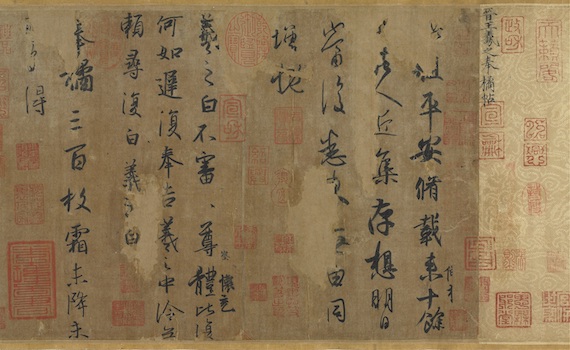 晉王羲之奉橘帖
此粗平安脩載来十餘
日諸人近集存想明日
當復悉来無由同
增慨
羲之白不審尊體比復
察
懷充
何如遲復奉告羲之中冷無
賴尋復白羲之白
奉橘三百枚霜未降未
可多得